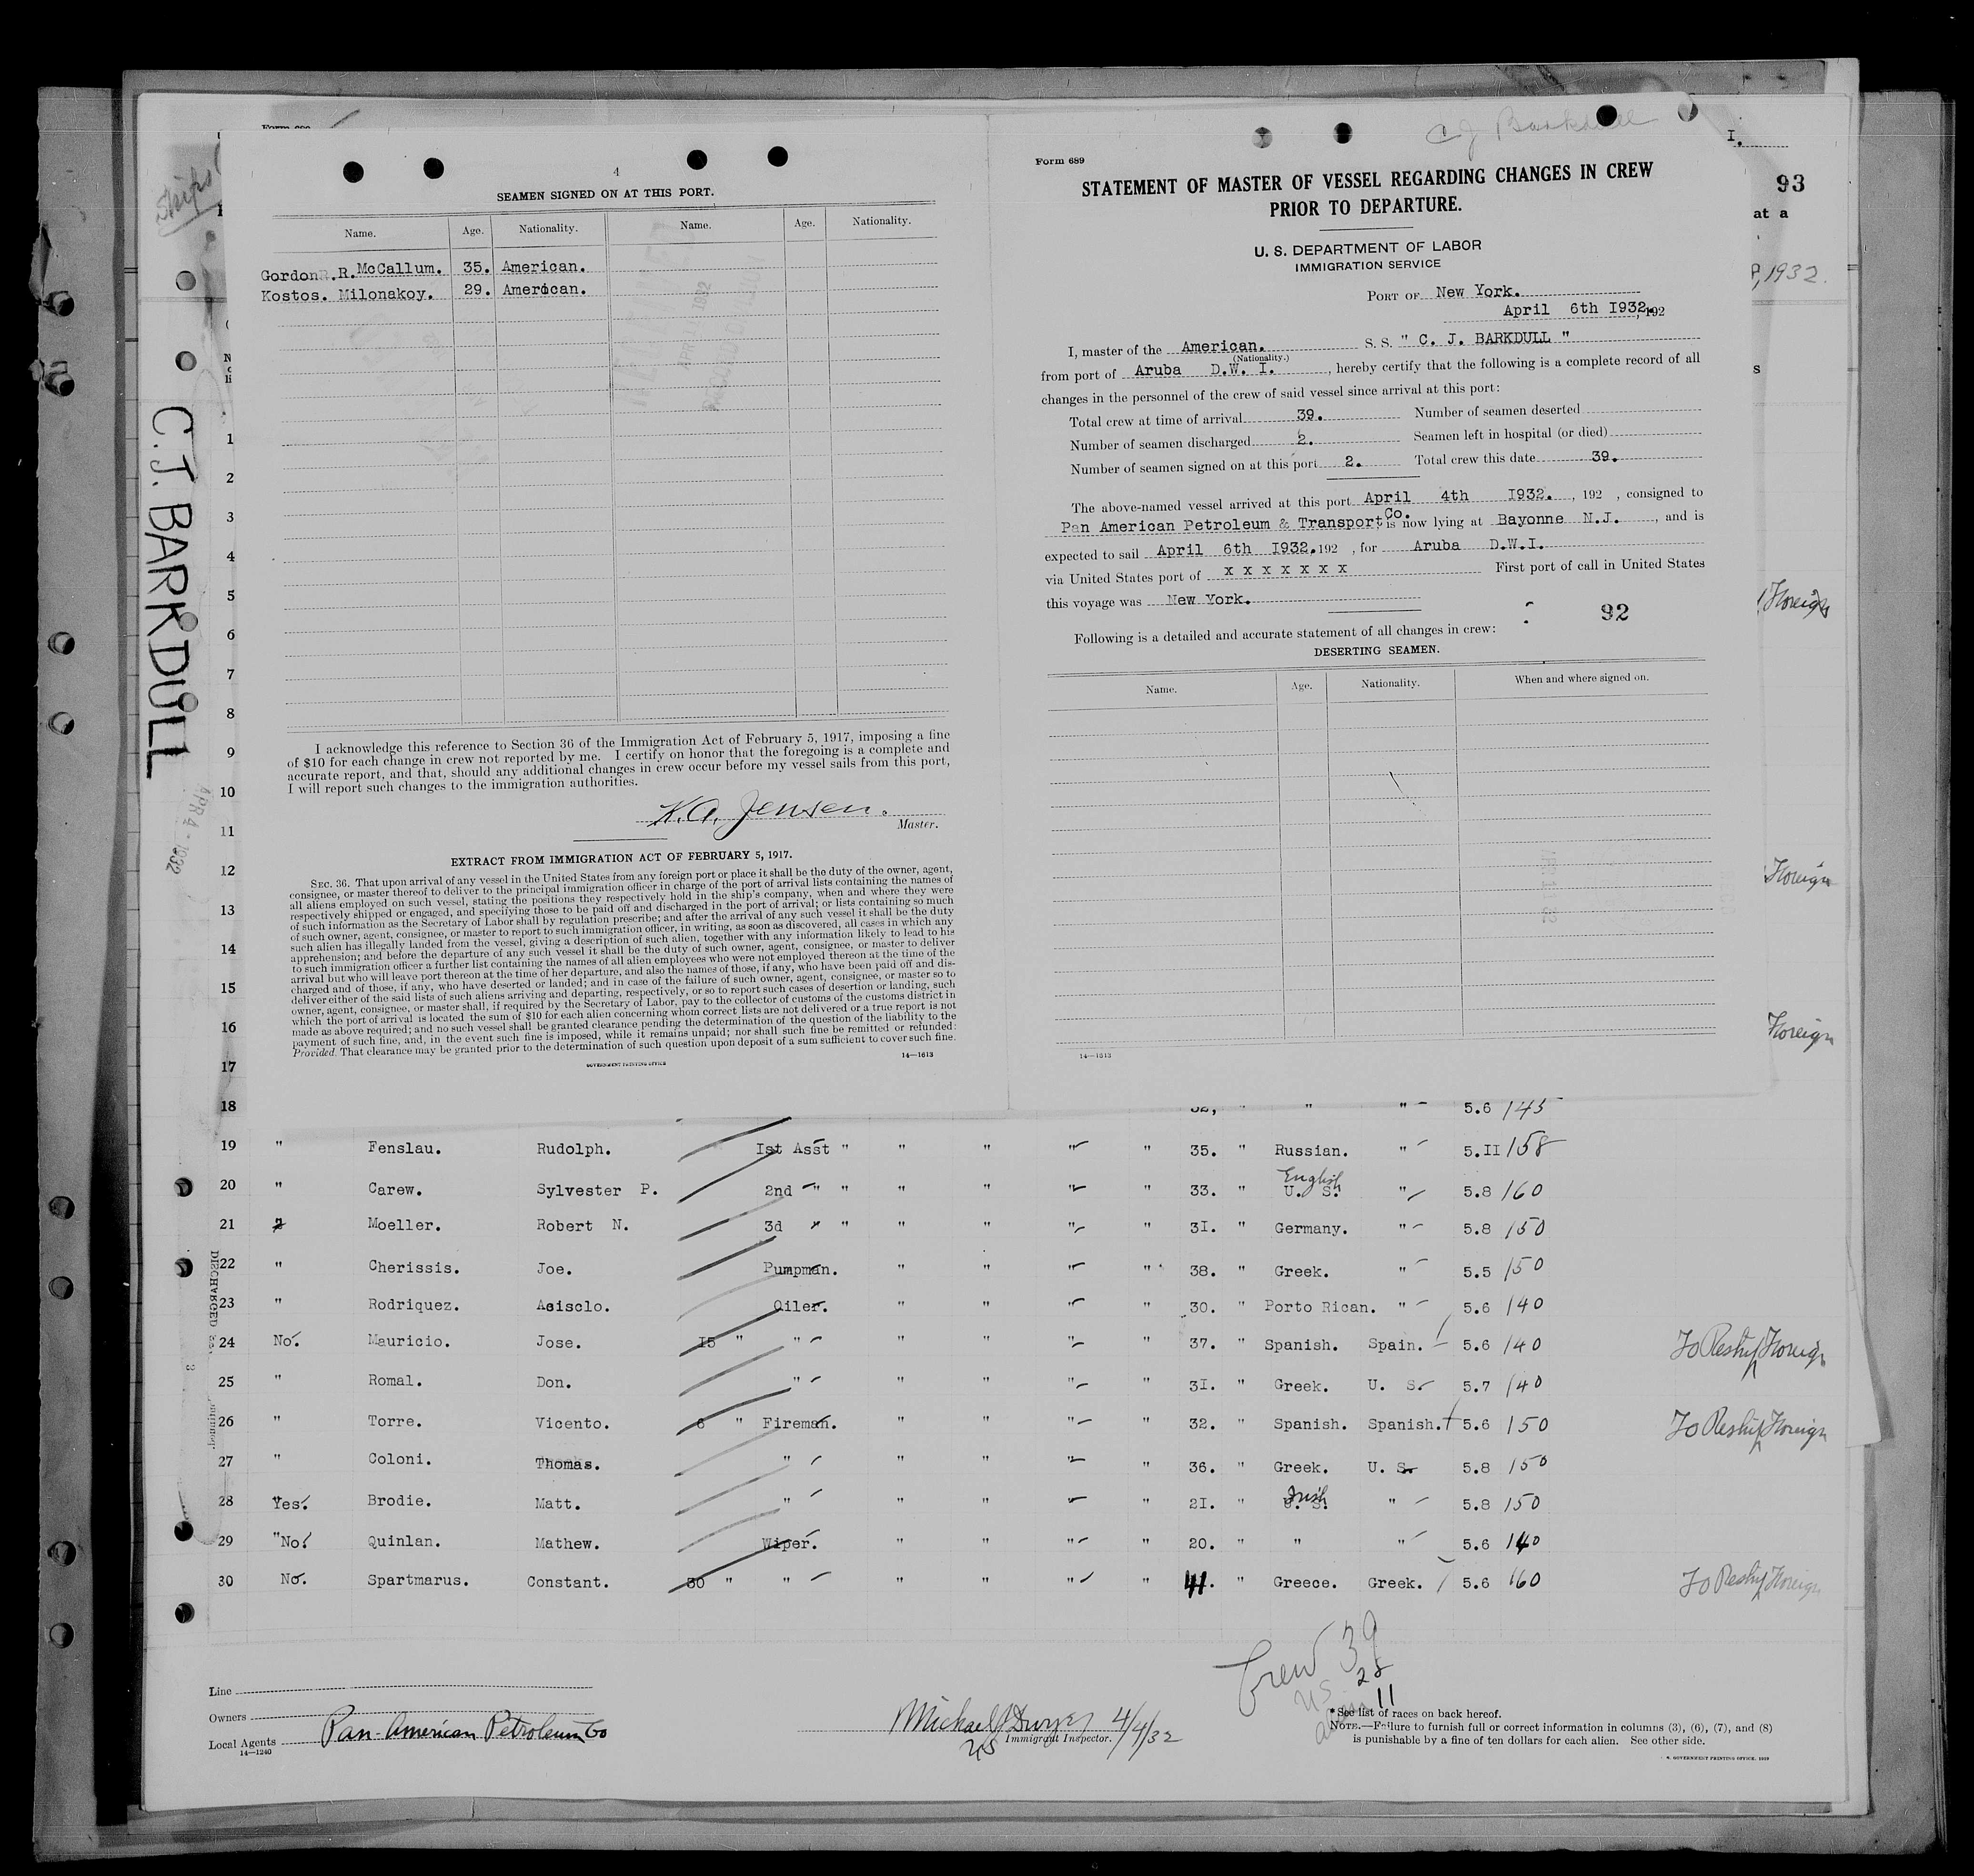 Ships
C.J. BARKDULL
APR 4 - 1932
4
SEAMEN SIGNED ON AT THIS PORT.
Name. Age. Nationality. Name. Age. Nationality.
Gordon R. McCallum. 35. American.
Kostos. Milonakoy. 29. American.
I acknowledge this reference to Section 36 of the Immigration Act of February 5, 1917, imposing a fine
of $10 for each change in crew not reported by me. I certify on honor that the foregoing is a complete and
accurate report, and that, should any additional changes in crew occur before my vessel sails from this port,
I will report such changes to the immigration authorities.
K.A. Jensen.
Master.
EXTRACT FROM IMMIGRATION ACT OF FEBRUARY 5, 1917.
SEC. 36. That upon arrival of any vessel in the United States from any foreign port or place it shall be the duty of the owner, agent,
consignee, or master thereof to deliver to the principal immigration officer in charge of the port of arrival lists containing the names of
all aliens employed on such vessel, stating the positions they respectively hold in the ship's company, when and where they were
respectively shipped or engaged, and specifying those to be paid off and discharged in the port of arrival; or lists containing so much
of such information as the Secretary of Labor shall by regulation prescribe; and after the arrival of any such vessel it shall be the duty
of such owner, agent, consignee, or master to report to such immigration officer, in writing, as soon as discovered, all cases in which any
such alien has illegally landed from the vessel, giving a description of such alien, together with any information likely to lead to his
apprehension; and before the departure of any such vessel it shall be the duty of such owner, agent, consignee, or master to deliver
to such immigration officer a further list containing the names of all alien employees who were not employed thereon at the time of the
arrival but who will leave port thereon at the time of her departure, and also the names of those, if any, who have been paid off and dis-
charged and of those, if any, who have deserted or landed; and in case of the failure of such owner, agent, consignee, or master so to
deliver either of the said lists of such aliens arriving and departing, respectively, or so to report such cases of desertion or landing, such
owner, agent, consignee, or master shall, if required by the Secretary of Labor, pay to the collector of customs of the customs district in
which the port of arrival is located the sum of $10 for each alien concerning whom correct lists are not delivered or a true report is not
made as above required; and no such vessel shall be granted clearance pending the determination of the question of the liability to the
payment of such fine, and, in the event such fine is imposed, while it remains unpaid; nor shall such fine be remitted or refunded:
Provided, That clearance may be granted prior to the determination of such question upon deposit of a sum sufficient to cover such fine.
GOVERNMENT PRINTING OFFICE 14—1613
C J Barkdull
Form 689
STATEMENT OF MASTER OF VESSEL REGARDING CHANGES IN CREW
PRIOR TO DEPARTURE.
U. S. DEPARTMENT OF LABOR
IMMIGRATION SERVICE
PORT OF New York.
April 6th I932., 192
I, master of the American. S. S. " C. J. BARKDULL "
(Nationality.)
from port of Aruba D.W. I. , hereby certify that the following is a complete record of all
changes in the personnel of the crew of said vessel since arrival at this port:
Total crew at time of arrival 39. Number of seamen deserted
Number of seamen discharged 2. Seamen left in hospital (or died)
Number of seamen signed on at this port 2. Total crew this date 39.
The above-named vessel arrived at this port April 4th I932. , 192 , consigned to
Pan American Petroleum & Transport Co. is now lying at Bayonne N.J. , and is
expected to sail April 6th I932. 192 , for Aruba D.W.I.
via United States port of x x x x x x x First port of call in United States
this voyage was New York.
92
Following is a detailed and accurate statement of all changes in crew:
DESERTING SEAMEN.
Name. Age. Nationality. When and where signed on.
14—1613
I.
93
at a
1932.
s
Foreign
Foreign
Foreign
1
2
3
4
5
6
7
8
9
10
11
12
13
14
15
16
17
18 " " 5.6 145
19 " Fenslau. Rudolph. Ist Asst " " " " " 35. " Russian. " 5.II 158
20 " Carew. Sylvester P. 2nd " " " " " " 33. " U. S. English " 5.8 160
21 " Moeller. Robert N. 3d " " " " " " 3I. " Germany. " 5.8 150
22 " Cherissis. Joe. Pumpman. " " " " 38. " Greek. " 5.5 150
23 " Rodriquez. Acisclo. Oiler. " " " " 30. " Porto Rican. " 5.6 140
24 No. Mauricio. Jose. I5 " " " " " " 37. " Spanish. Spain. 5.6 140 To Reship Foreign
25 " Romal. Don. " " " " " 3I. " Greek. U. S. 5.7 140
26 " Torre. Vicento. 6 " Fireman. " " " " 32. " Spanish. Spanish. 5.6 150 To Reship Foreign
27 " Coloni. Thomas. " " " " " 36. " Greek. U. S. 5.8 150
28 Yes. Brodie. Matt. " " " " " 2I. " Irish " 5.8 150
29 "No. Quinlan. Mathew. Wiper. " " " " 20. " " " 5.6 140
30 No. Spartmarus. Constant. 30 " " " " " " 41. " Greece. Greek. 5.6 160 To Reship Foreign
DISCHARGED
Crew 39
US 28
alien 11
Line
Owners
Local Agents Pan-American Petroleum Co
14—1240
Michael J Dwyer 4/4/32
US Immigrant Inspector.
* See list of races on back hereof.
NOTE.—Failure to furnish full or correct information in columns (3), (6), (7), and (8)
is punishable by a fine of ten dollars for each alien. See other side.
GOVERNMENT PRINTING OFFICE